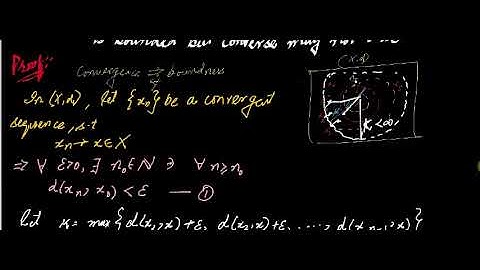 is bounded but converse may not
Proof:
Convergence ⇒ boundness
(X,d)
In (X,d), let {x_n} be a convergent
sequence, s.t
x_n → x ∈ X
K<∞
⇒ ∀ ε>0, ∃ n₀∈ℕ ∋ ∀ n≥n₀
d(x_n, x_0) < ε — ①
let K = max{d(x₁,x)+ε, d(x₂,x)+ε, ....., d(x_{n-1},x)}